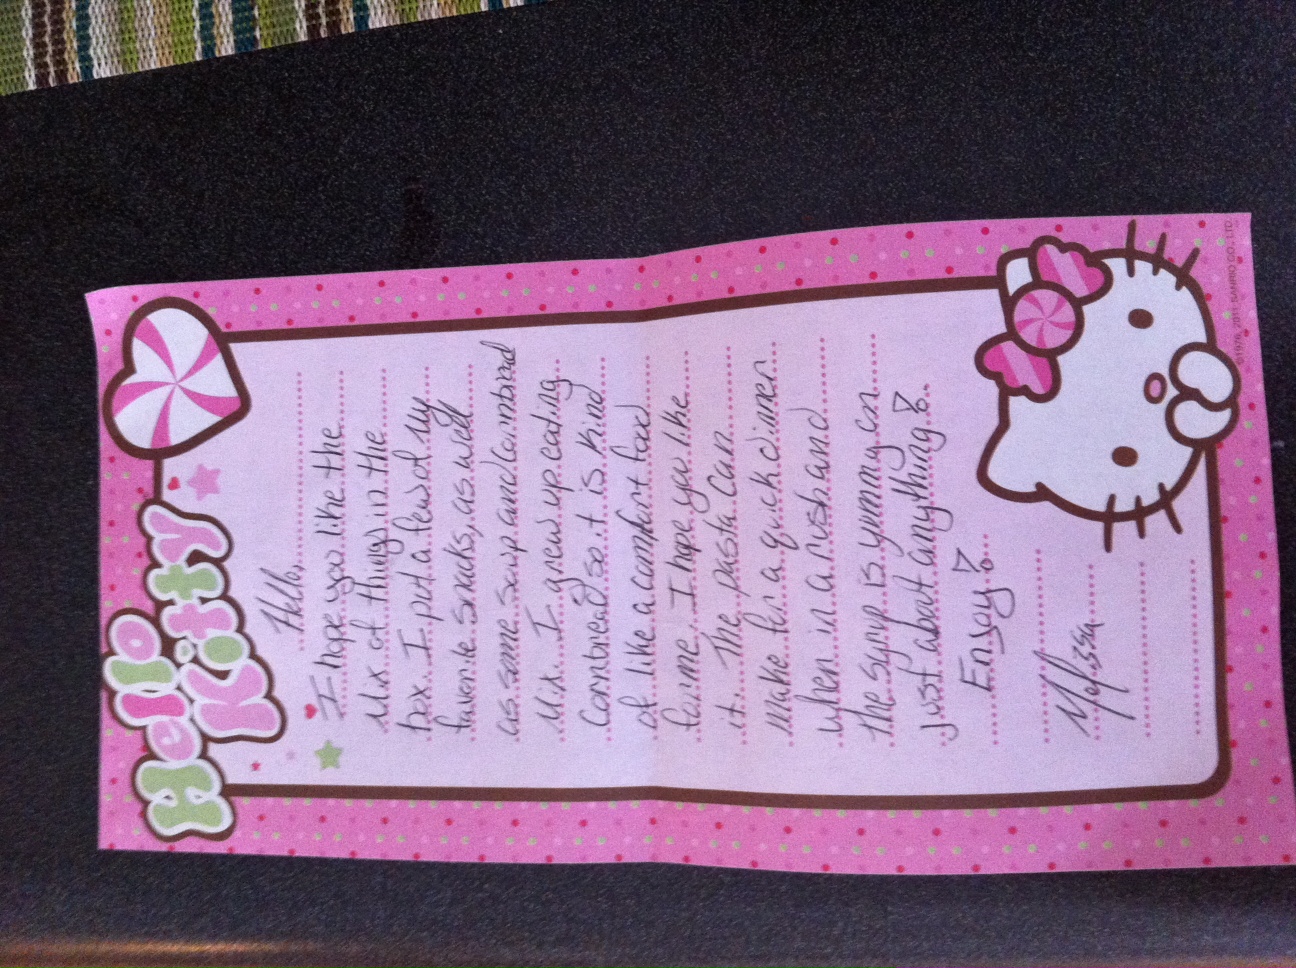 Hello
Kitty
Hello,
I hope you like the
mix of things in the
box. I put a few of my
favorite snacks, as well
as some soup and cornbread
mix. I grew up eating
cornbread so it is kind
of like a comfort food
for me. I hope you like
it. The pasta can
make for a quick dinner
when in a rush and
the syrup is yummy on
just about anything!
Enjoy!
Melissa
©1976, 2011 SANRIO CO., LTD.